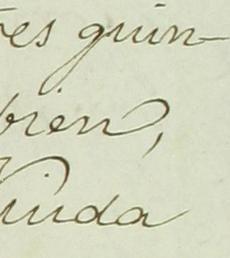 res quin-
brien,
Viuda